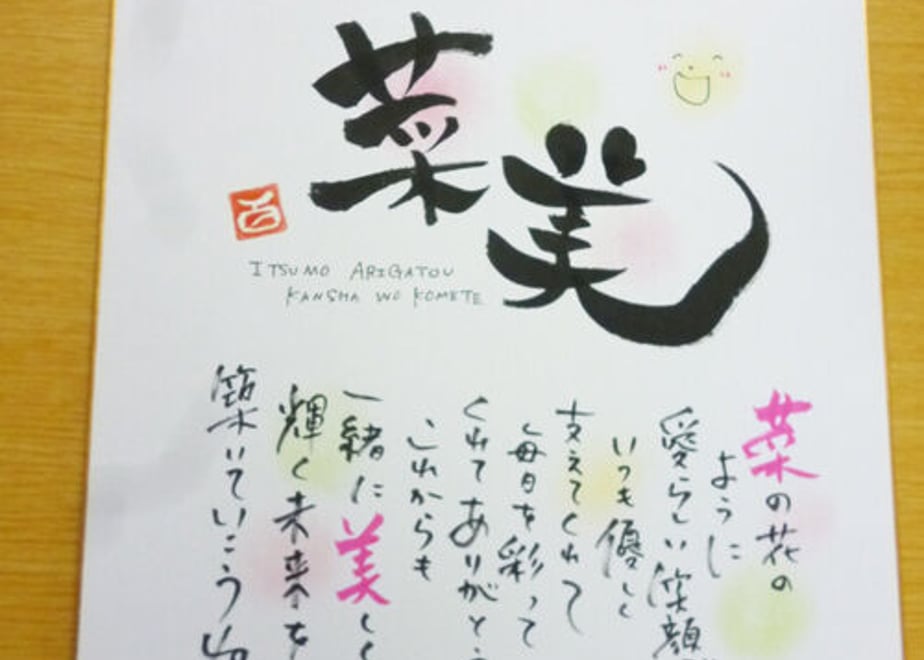 菜美
百
ITSUMO ARIGATOU
KANSHA WO KOMETE
菜の花の
ように
愛らしい笑顔
いつも優しく
支えてくれて
毎日を彩って
くれてありがとう
これからも
一緒に美しく
輝く未来を
築いていこう